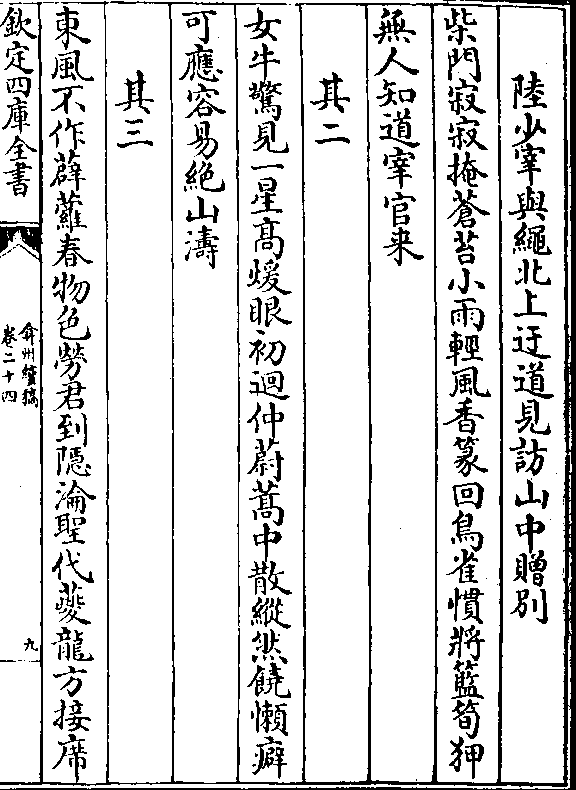 陸少宰與繩北上迂道見訪山中贈別
柴門寂寂掩蒼苔小雨輕風香篆回鳥雀慣將籃筍狎
無人知道宰官来
其二
女牛驚見一星高煖眼初迴仲蔚蒿中散縱然饒懶癖
可應容易絶山濤
其三
東風不作薜蘿春物色勞君到隱淪聖代夔龍方接席
欽定四庫全書
弇州續稿
卷二十四
九